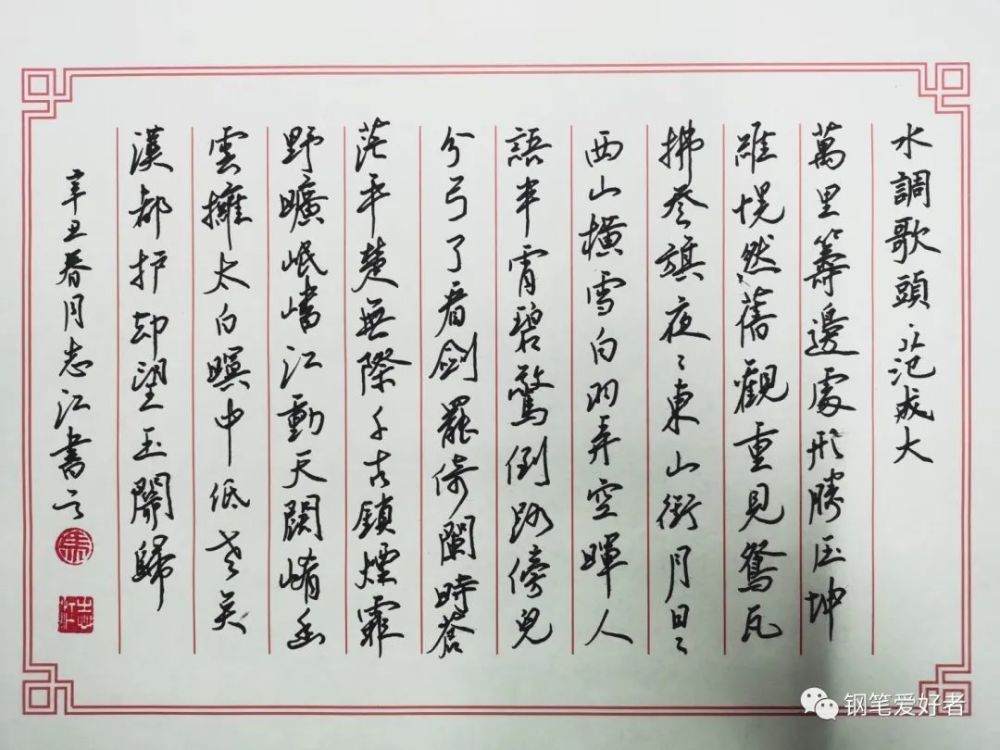 水調歌頭·范成大
萬里籌邊處形勝压坤
維恍然舊觀重見鴛瓦
拂參旗夜〻東山銜月日〻
西山橫雪白羽弄空暉人
語半霄碧驚倒路傍兒
分弓了看劍罷倚闌時蒼
茫平楚無際千古鎖煙霏
野曠岷嶓江動天闊崤函
雲擁太白暝中低老矣
漢都护却望玉關歸
辛丑春月志江書
志江
钢笔爱好者